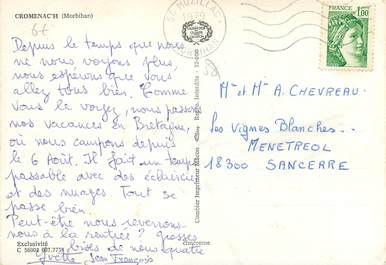 CROMENAC'H (Morbihan)
6€
Depuis le temps que nous
ne nous voyons plus,
nous espérons que vous
allez tous bien. Comme
vous le voyez, nous passons
nos vacances en Bretagne,
où nous campons depuis
le 6 Août. Il fait un temps
passable avec des éclaircies
et des nuages. Tout se
passe bien.
Peut-être nous reverrons-
nous à la rentrée? Grosses
bises de nous quatre
Yvette Jean François
Exclusivité
C 56002 007.7758
cim
Combier Imprimeur Mâcon
Reprod. Interdite
MUZILLAC
MORBIHAN
FRANCE
1,00
Mr et Mme A. CHEVREAU
les Vignes Blanches..
MENETREOL
18300 SANCERRE